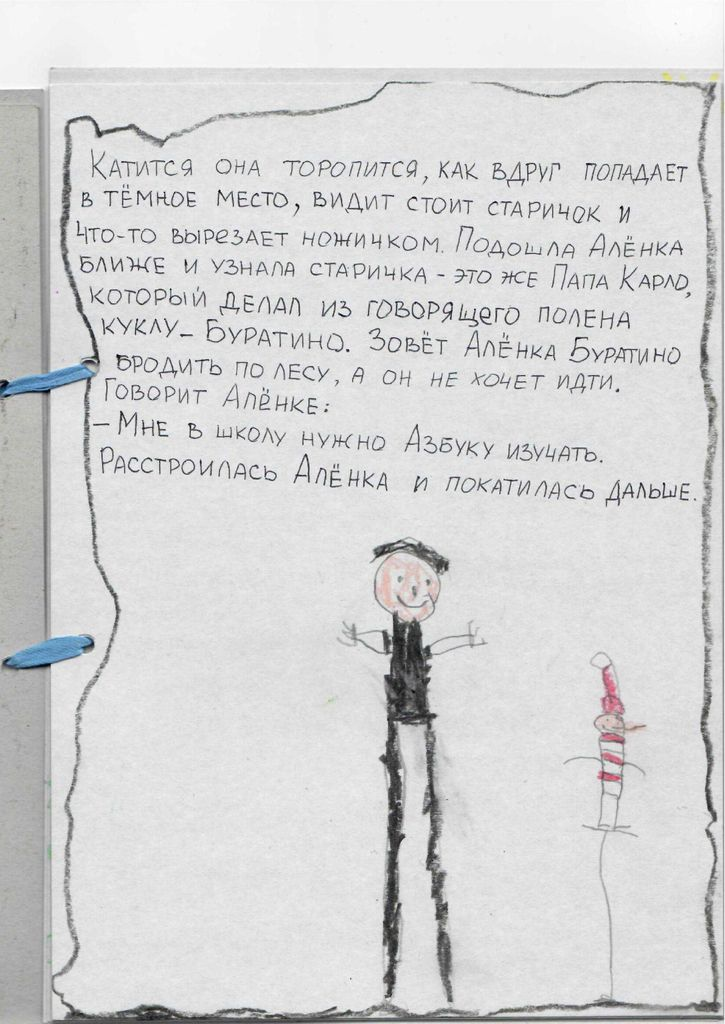 Катится она торопится, как вдруг попадает
в тёмное место, видит стоит старичок и
что-то вырезает ножичком. Подошла Алёнка
ближе и узнала старичка - это же Папа Карло,
который делал из говорящего полена
куклу - Буратино. Зовёт Алёнка Буратино
бродить по лесу, а он не хочет идти.
Говорит Алёнке:
- Мне в школу нужно Азбуку изучать.
Расстроилась Алёнка и покатилась дальше.